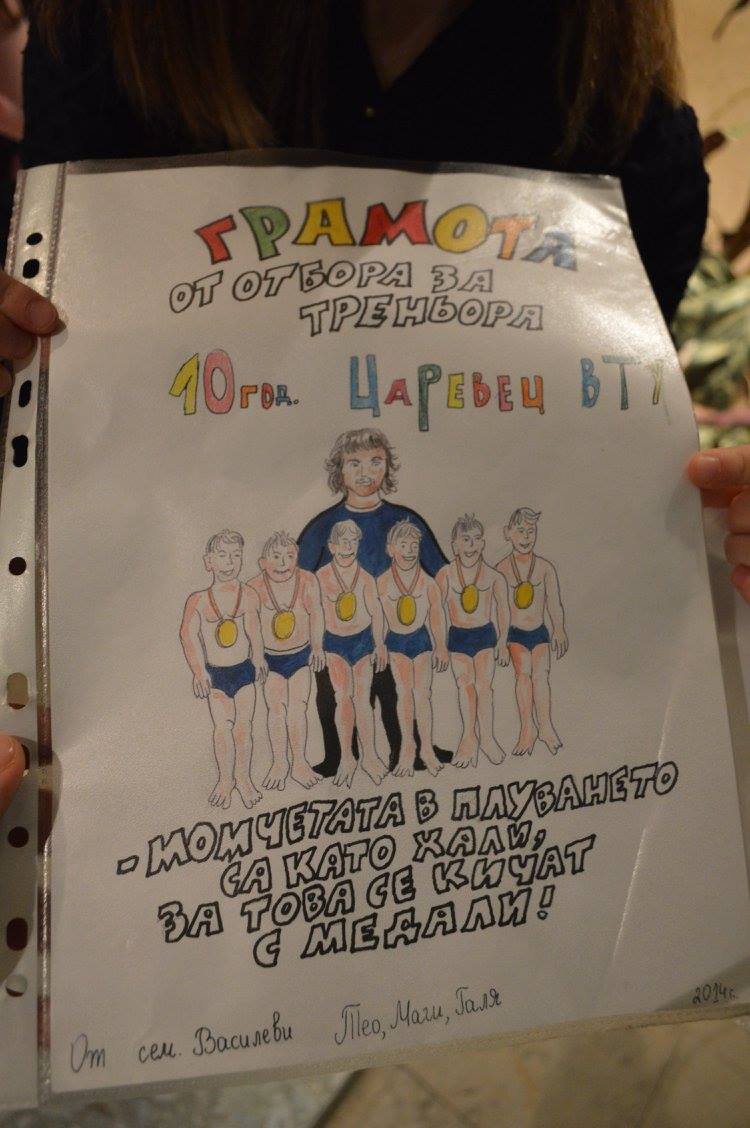 ГРАМОТА
ОТ ОТБОРА ЗА
ТРЕНЬОРА
10 год. ЦАРЕВЕЦ ВТУ
- МОМЧЕТАТА В ПЛУВАНЕТО
СА КАТО ХАЛИ,
ЗА ТОВА СЕ КИЧАТ
С МЕДАЛИ!
От сем. Василеви Тео, Маги, Галя
2014г.